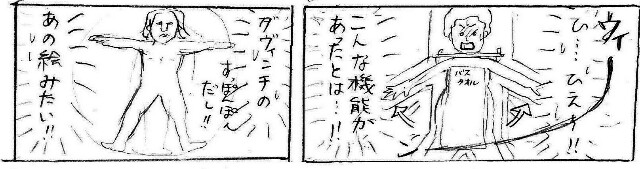 ウィ
ひ…ひえー!!
バス
タオル
こんな機能が
あたとは…!!
ダヴィンチの
すっぽんぽん
だし!!
あの絵みたい!!